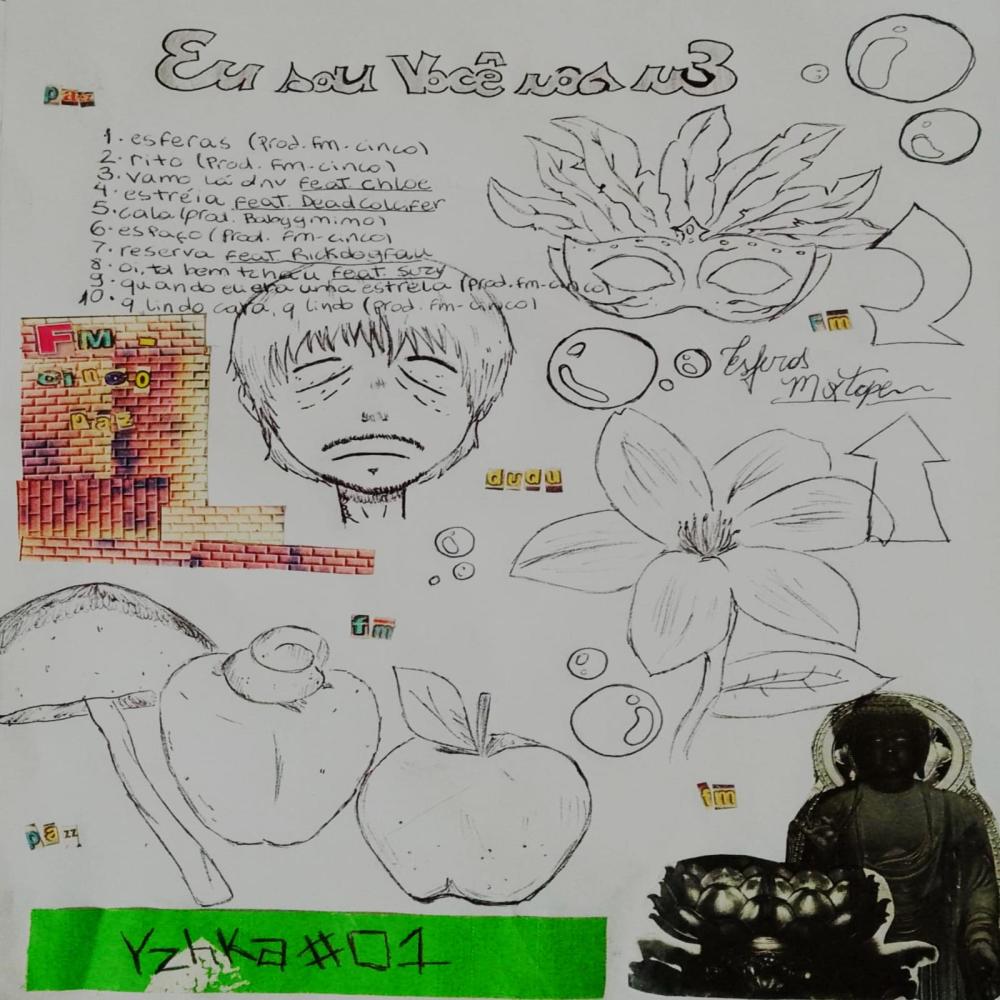 Eu sou Você nós n3
paz
1. esferas (Prod. fm-cinco)
2. rito (Prod. fm-cinco)
3. vamo lá dnv feat chloe
4. estréia feat Deadcolifer
5. cala (prod. Babygmimo)
6. espaço (Prod. fm-cinco)
7. reserva feat Rickdograu
8. oi, td bem tchau feat suzy
9. quando eu era uma estrela (prod. fm-cinco)
10. q lindo cara, q lindo (prod. fm-cinco)
Fm
Fm -
cinco
Paz
Esferas
Mixtape
dudu
fm
fm
pazz
Yzhka#01